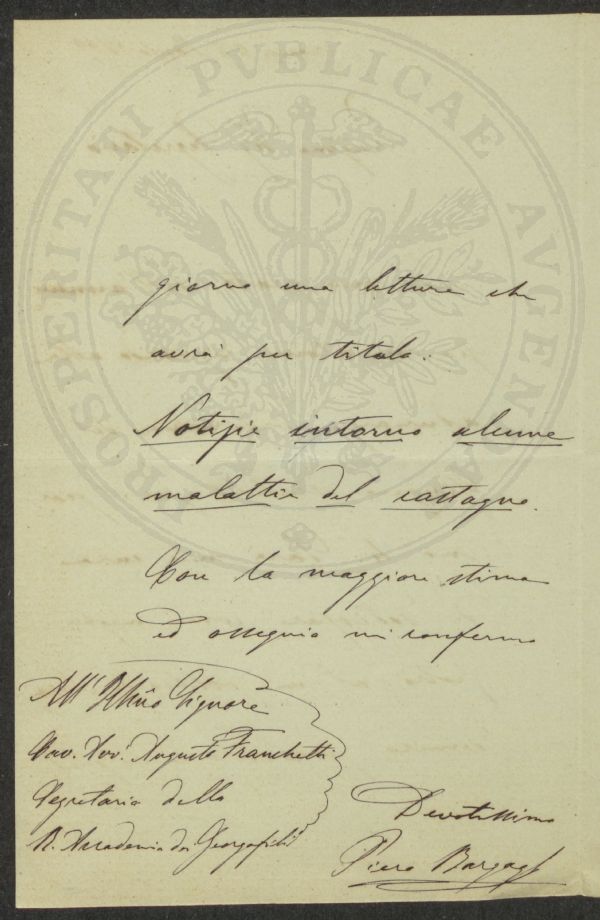 PROSPERITATI PVBLICAE AVGENDAE
giorno una lettura che
avrà per titolo:
Notizie intorno alcune
malattie del castagno.
Con la maggiore stima
ed ossequio mi confermo
All' Illmo Signore
Cav. Avv. Augusto Franchetti
Segretario della
R. Accademia dei Georgofili
Devotissimo
Piero Bargagli